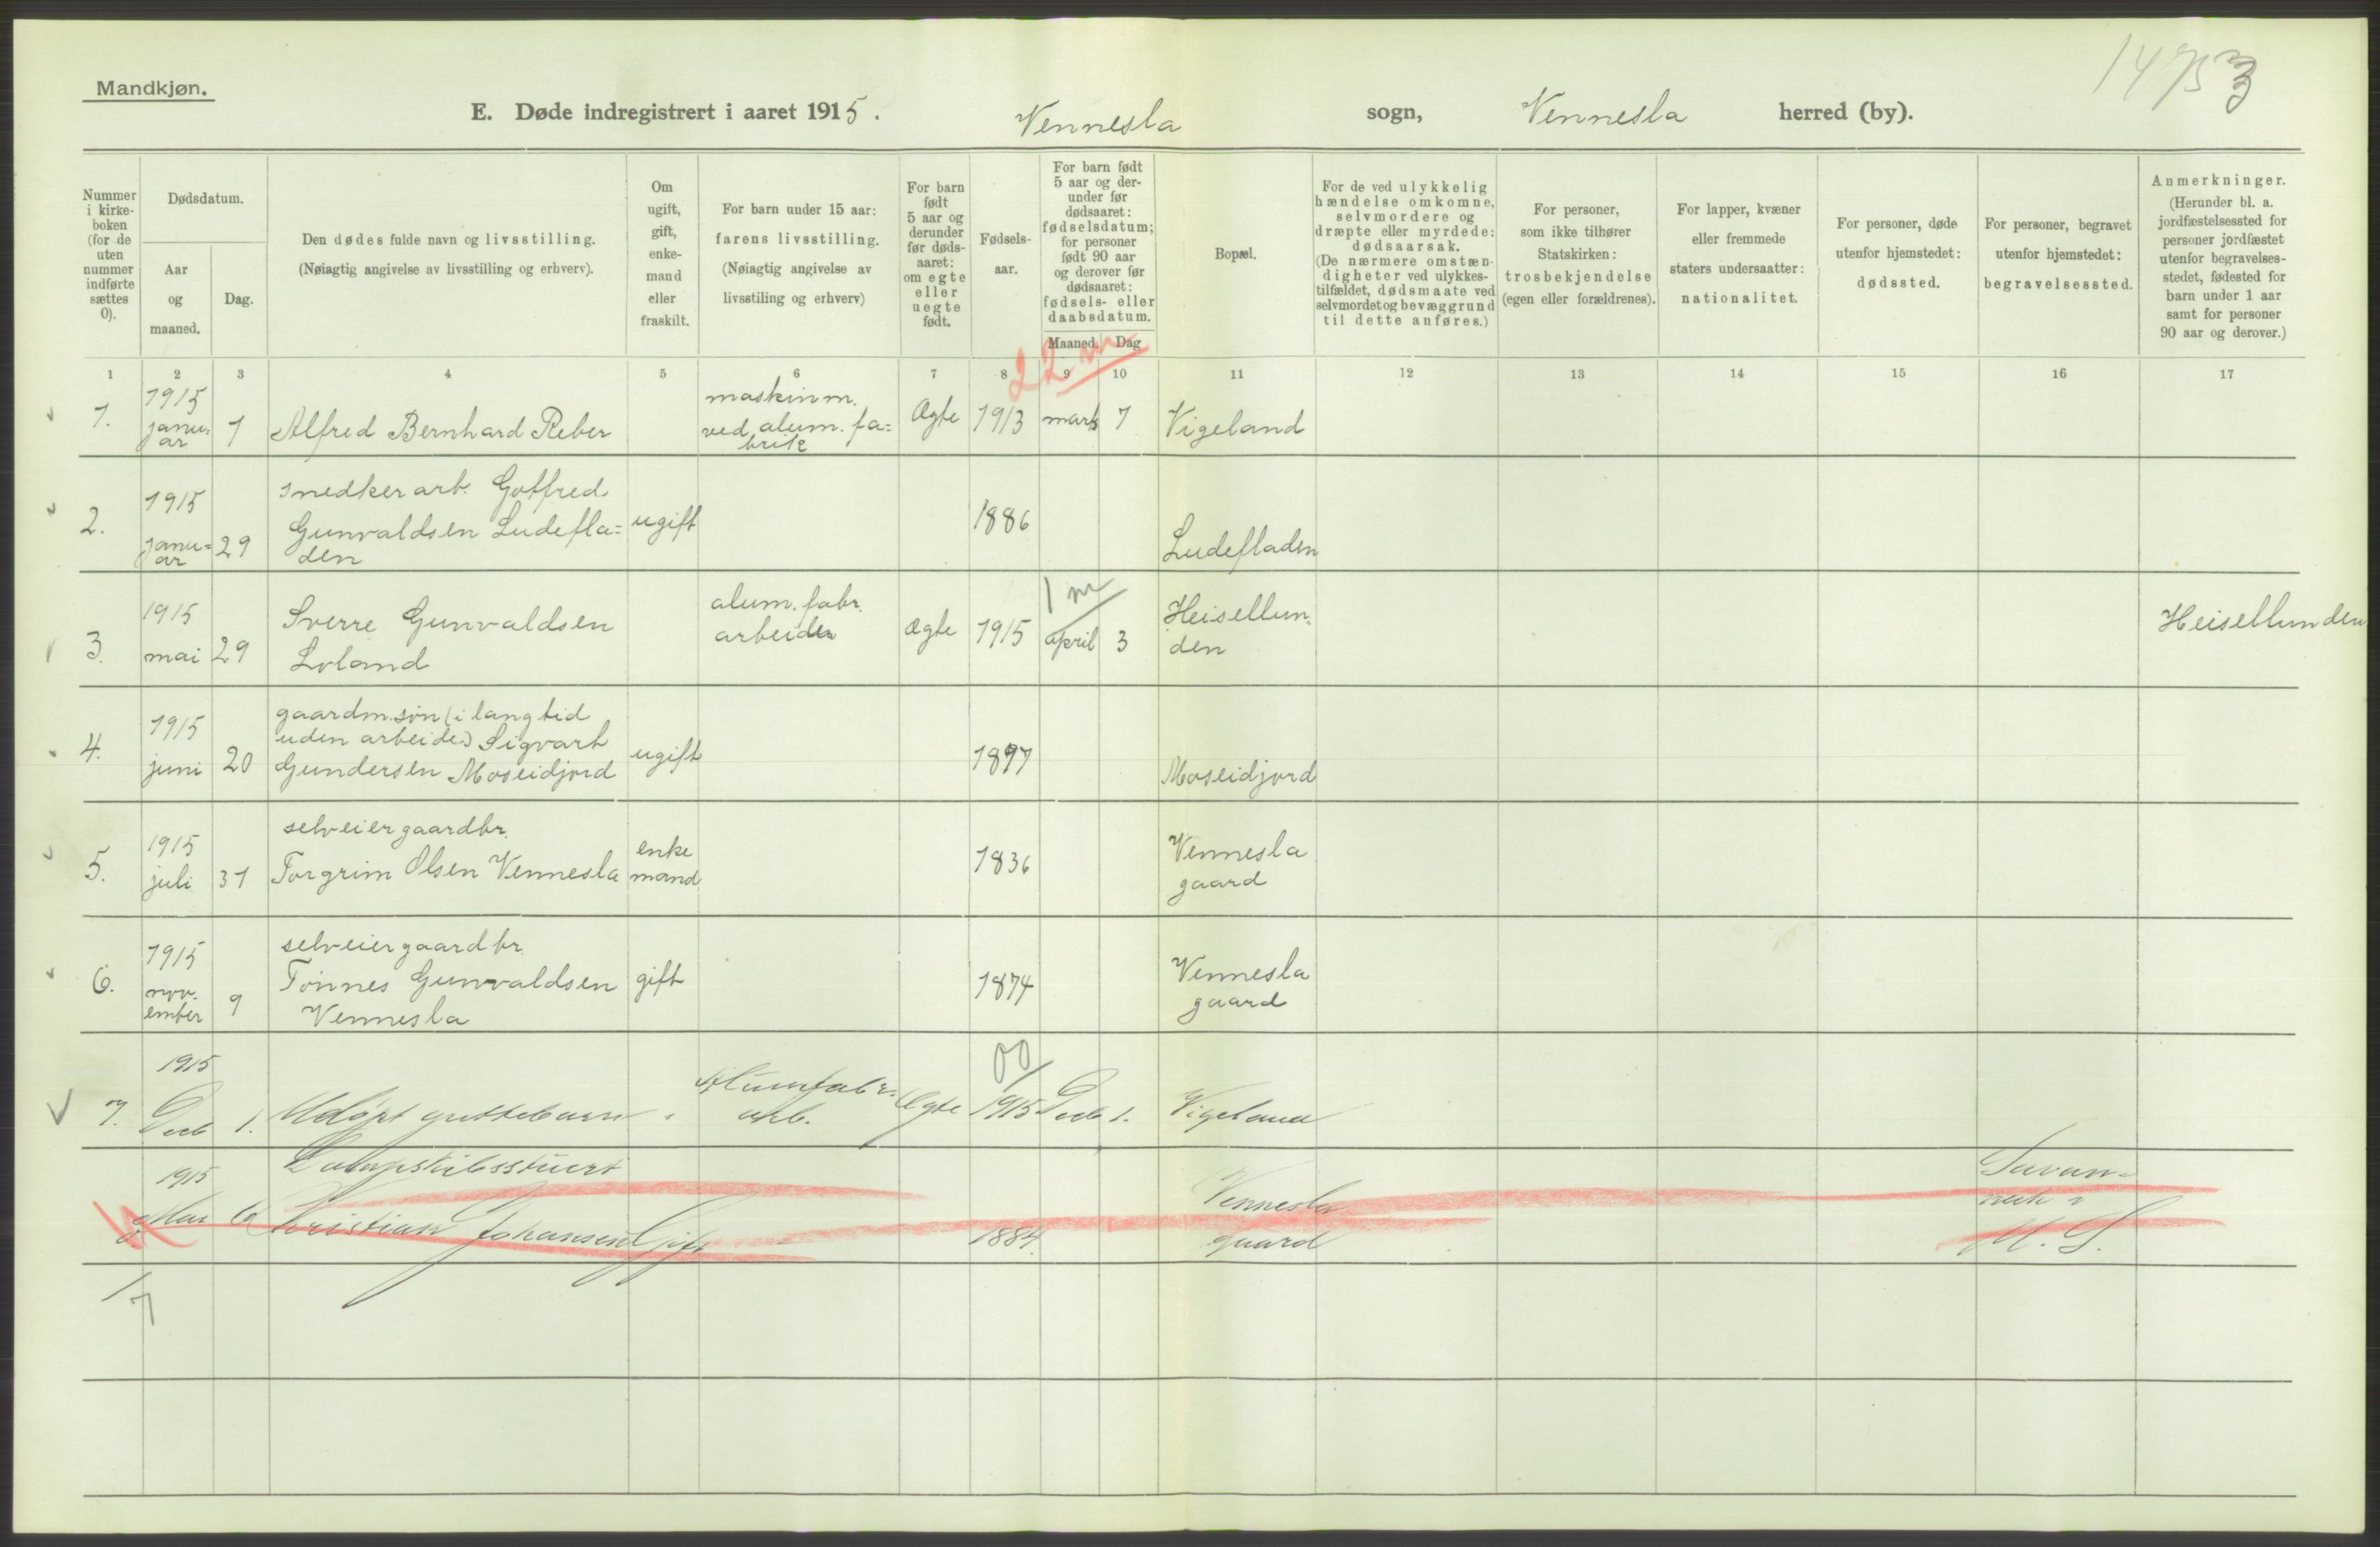 Mandkjøn.
1475 3
E. Døde indregistrert i aaret 1915. Vennesla sogn, Vennesla herred (by).
Nummer i kirke-boken (for de uten nummer indførte sættes 0).
Dødsdatum.
Aar og maaned.
Dag.
Den dødes fulde navn og livsstilling.
(Nøiagtig angivelse av livsstilling og erhverv).
Om ugift, gift, enke-mand eller fraskilt.
For barn under 15 aar:
farens livsstilling.
(Nøiagtig angivelse av livsstiling og erhverv)
For barn født 5 aar og derunder før døds-aaret: om egte eller uegte født.
Fødsels-aar.
For barn født 5 aar og der-under før dødsaaret: fødselsdatum; for personer født 90 aar og derover før dødsaaret: fødsels- eller daabsdatum.
Maaned. Dag
Bopæl.
For de ved ulykkelig hændelse omkomne, selvmordere og dræpte eller myrdede: dødsaarsak. (De nærmere omstæn-digheter ved ulykkes-tilfældet, dødsmaate ved selvmordet og bevæggrund til dette anføres.)
For personer, som ikke tilhører Statskirken: trosbekjendelse (egen eller forældrenes).
For lapper, kvæner eller fremmede staters undersaatter: nationalitet.
For personer, døde utenfor hjemstedet: dødssted.
For personer, begravet utenfor hjemstedet: begravelsessted.
Anmerkninger. (Herunder bl. a. jordfæstelsessted for personer jordfæstet utenfor begravelses-stedet, fødested for barn under 1 aar samt for personer 90 aar og derover.)
1 2 3 4 5 6 7 8 9 10 11 12 13 14 15 16 17
22 m
1. 1915 janu=ar 1 Alfred Bernhard Reber maskinm. ved alum. fa=brik Ægte 1913 marts 7 Vigeland
2. 1915 janu=ar 29 snedkerarb. Gotfred Gunvaldsen Ludefla=den ugift 1886 Ludefladen
1 m
3. 1915 mai 29 Sverre Gunvaldsen Loland alum. fabr. arbeider ægte 1915 april 3 Heisellun=den Heisellunden
4. 1915 juni 20 gaardm.søn (i lang tid uden arbeide) Sigvart Gundersen Moseidjord ugift 1897 Moseidjord
5. 1915 juli 31 selveiergaardbr. Torgrim Olsen Vennesla enkemand 1836 Vennesla gaard
6. 1915 nov.ember 9 selveiergaardbr. Tønnes Gunvaldsen Vennesla gift 1874 Vennesla gaard
00
7. 1915 Decb 1. Udøpt guttebarn Alumfabr. arb. Ægte 1915 Decb 1. Vigeland
1915 Mai 6 Dampskibsstuert Kristian Johansen Gift 1884. Vennesla gaard
7